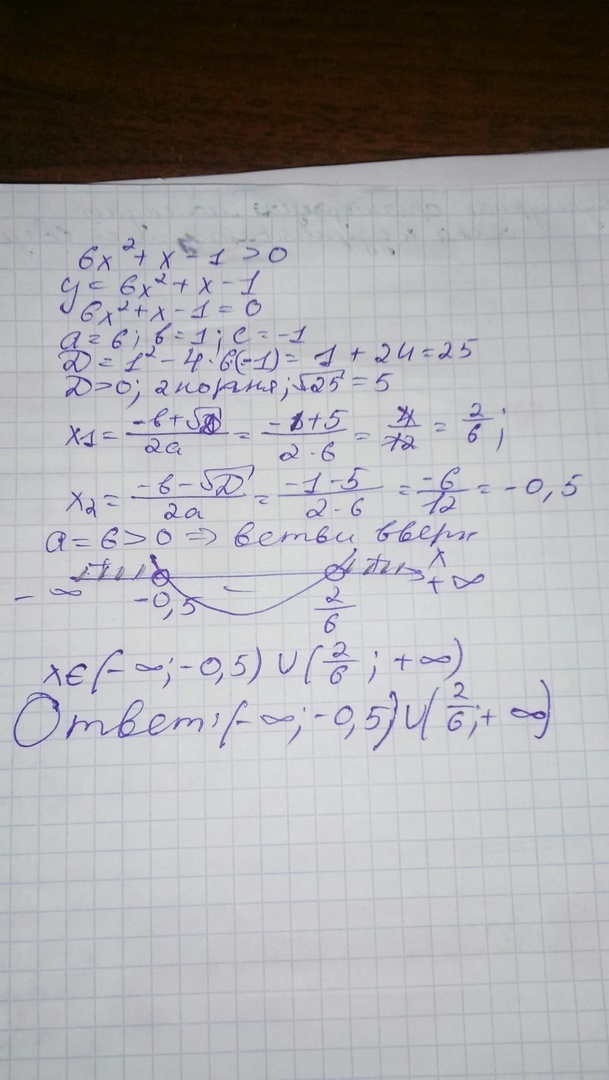 6x²+x-1>0
y=6x²+x-1
6x²+x-1=0
a=6; в=1; c=-1
D=1²-4·6(-1)=1+24=25
D>0; 2 корня; √25=5
x₁=(-в+√D)/2a=(-1+5)/2·6=4/12=2/6;
x₂=(-в-√D)/2a=(-1-5)/2·6=-6/12=-0,5
a=6>0⇒ветви вверх
+ - + x
-∞ -0,5 2/6 +∞
x∈(-∞;-0,5)∪(2/6;+∞)
Ответ:(-∞;-0,5)∪(2/6;+∞)